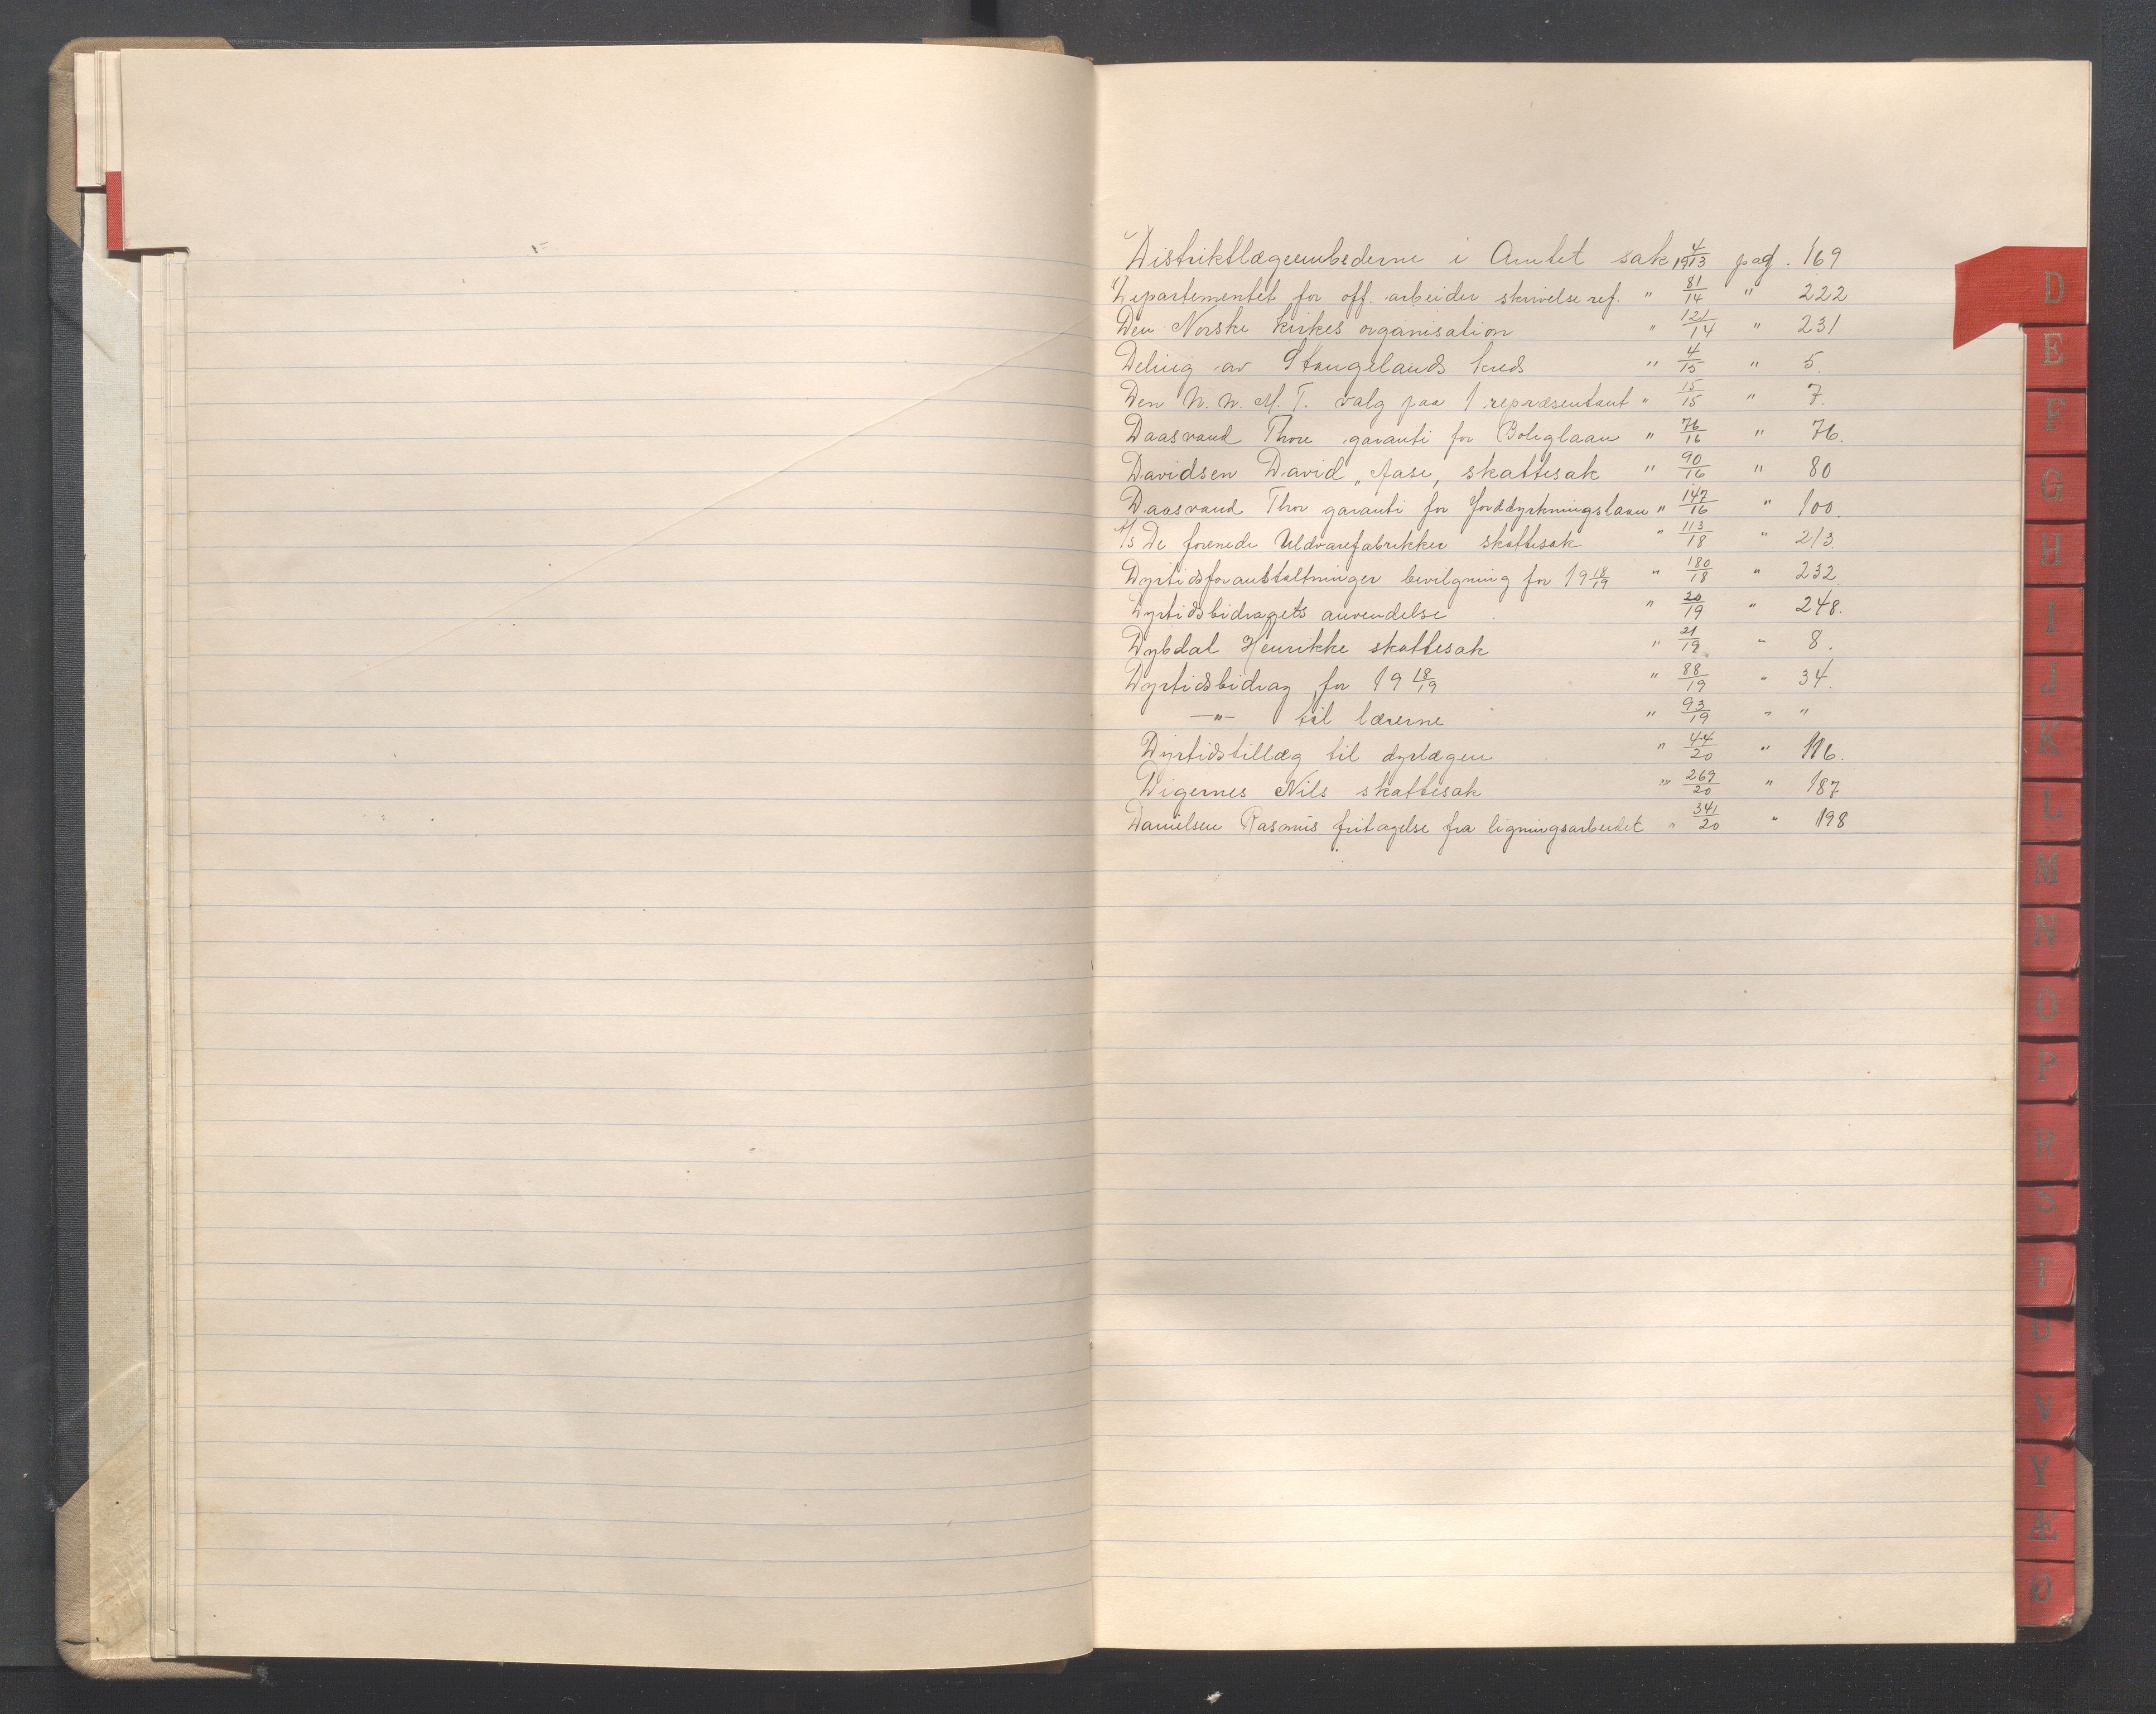 Distriktlægeembederne i Amtet sak 4/1913 pag. 169
Departementet for off. arbeider skrivelse ref. " 81/14 " 222
Den Norske kirkes organisation " 121/14 " 231
Deling av Stangelands kreds " 4/15 " 5.
Den N. N. M. T. valg paa 1 repræsentant " 15/15 " 7.
Daasvand Thore garanti for Boliglaan " 76/16 " 76.
Davidsen David, Aase, skattesak " 90/16 " 80
Daasvand Thor garanti for Jorddyrkningslaan " 147/16 " 100.
A/S De forenede Uldvarefabrikker skattesak " 113/18 " 213.
Dyrtidsforanstaltninger bevilgning for 19 18/19 " 180/18 " 232
Dyrtidsbidragets anvendelse " 20/19 " 248.
Dybdal Henrikke skattesak " 21/19 " 8.
Dyrtidsbidrag for 19 18/19 " 88/19 " 34.
—"— til lærerne " 93/19 " "
Dyrtidstillæg til dyrlægen " 44/20 " 116.
Digernes Nils skattesak " 269/20 " 187
Danielsen Rasmus fritagelse fra ligningsarbeidet " 341/20 " 198
D
E
F
G
H
I
J
K
L
M
N
O
P
R
S
T
U
V
Y
Æ
Ø